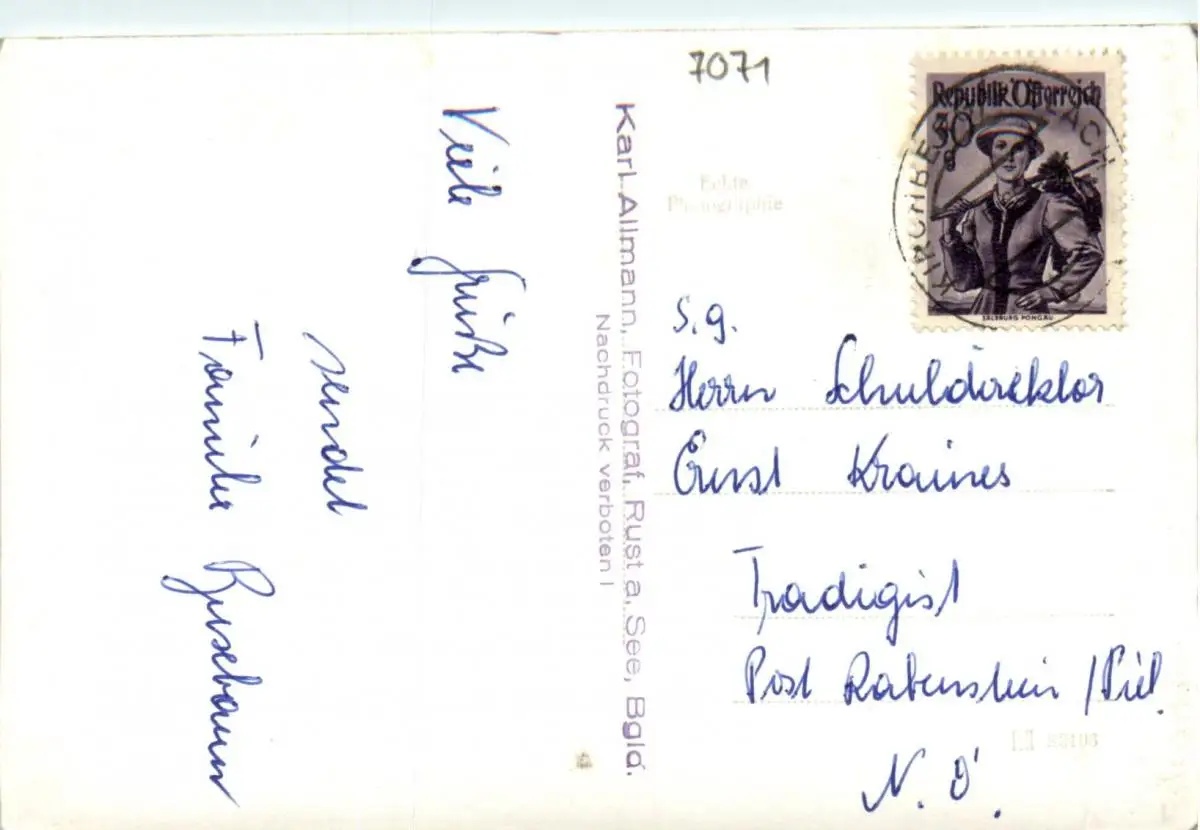 7071
Viele Grüße
sendet
Familie
Karl Allmann, Fotograf, Rust a. See, Bgld.
Nachdruck verboten!
Echte
Photographie
Republik Österreich
30
g
SALZBURG PONGAU
KIRCHBE ACH
S. g.
Herrn Schuldirektor
Ernst Kraines
Tradigist
Post Rabenstein / Piel.
N. Ö.